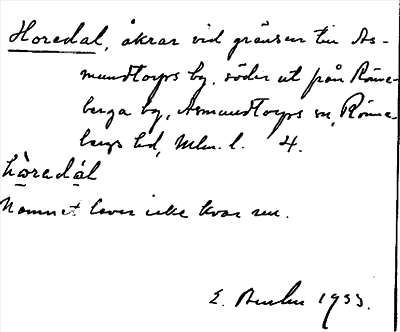 Horedal, åkrar vid gränsen till As-
mundtorps by, söder ut från Rönne-
berga by, Asmundtorps sn, Rönne-
bergs hd, Mlm. l. 4.
hòredál
Namnet lever icke kvar nu.
E. 1933.